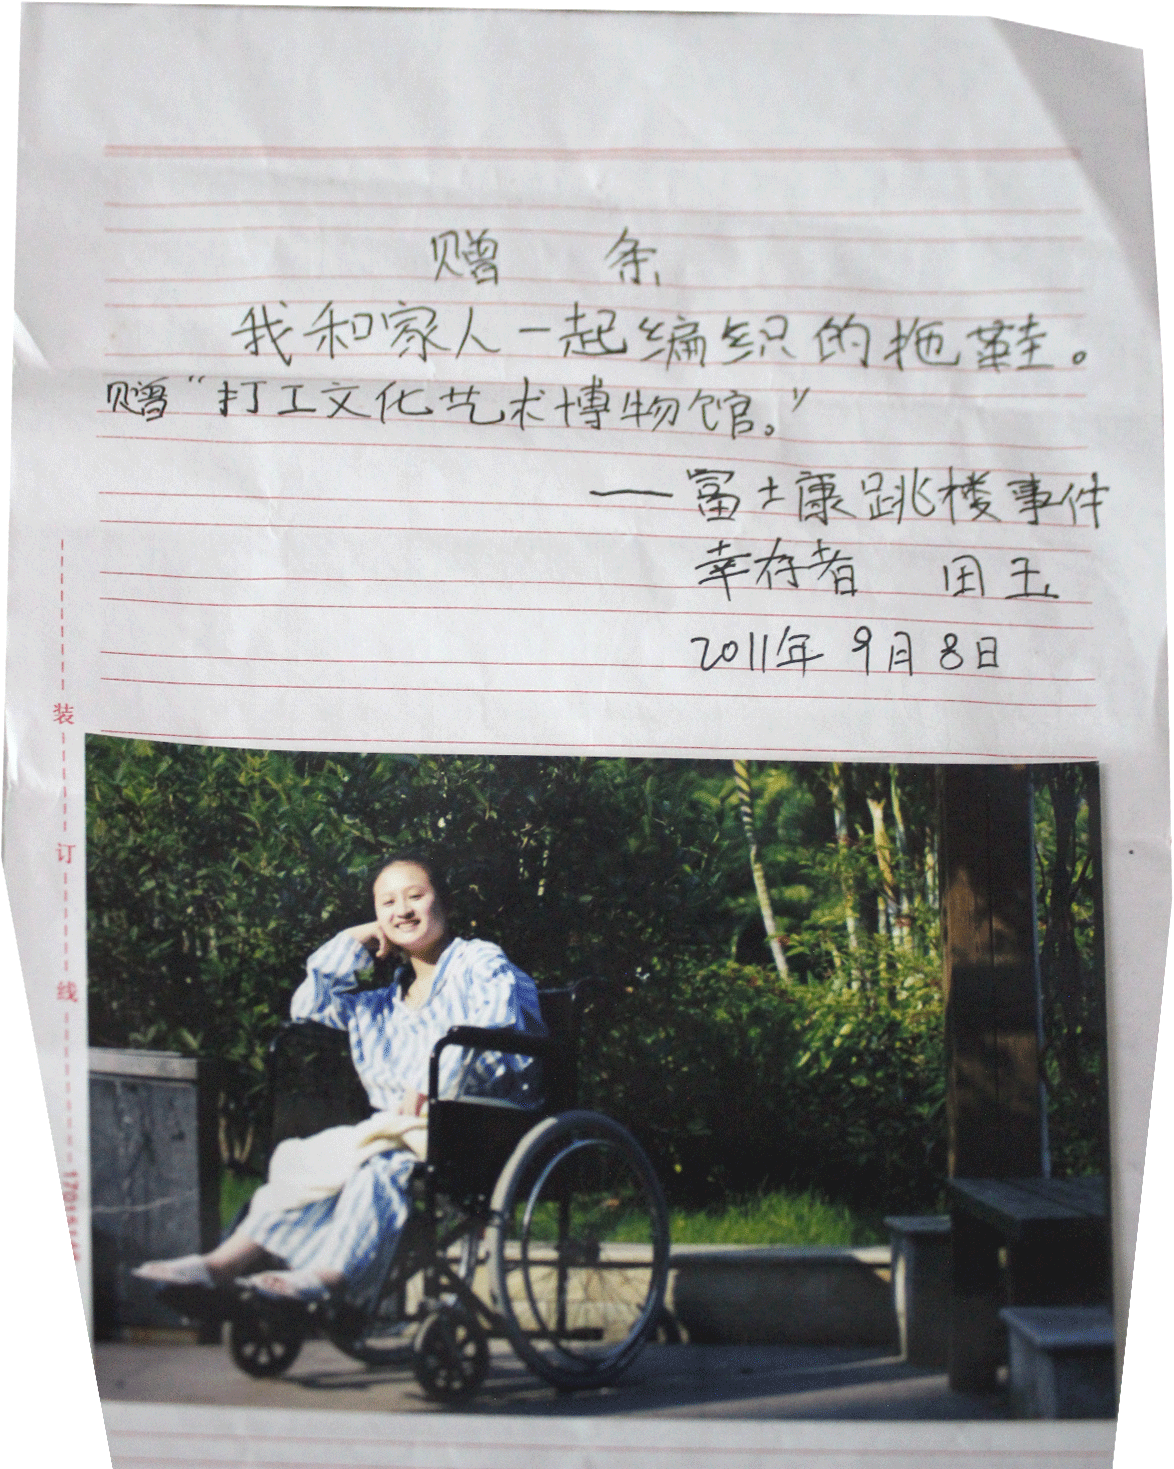 赠 条
我和家人一起编织的拖鞋。
赠“打工文化艺术博物馆。”
——富士康跳楼事件
幸存者 田玉
2011年9月8日
装
订
线